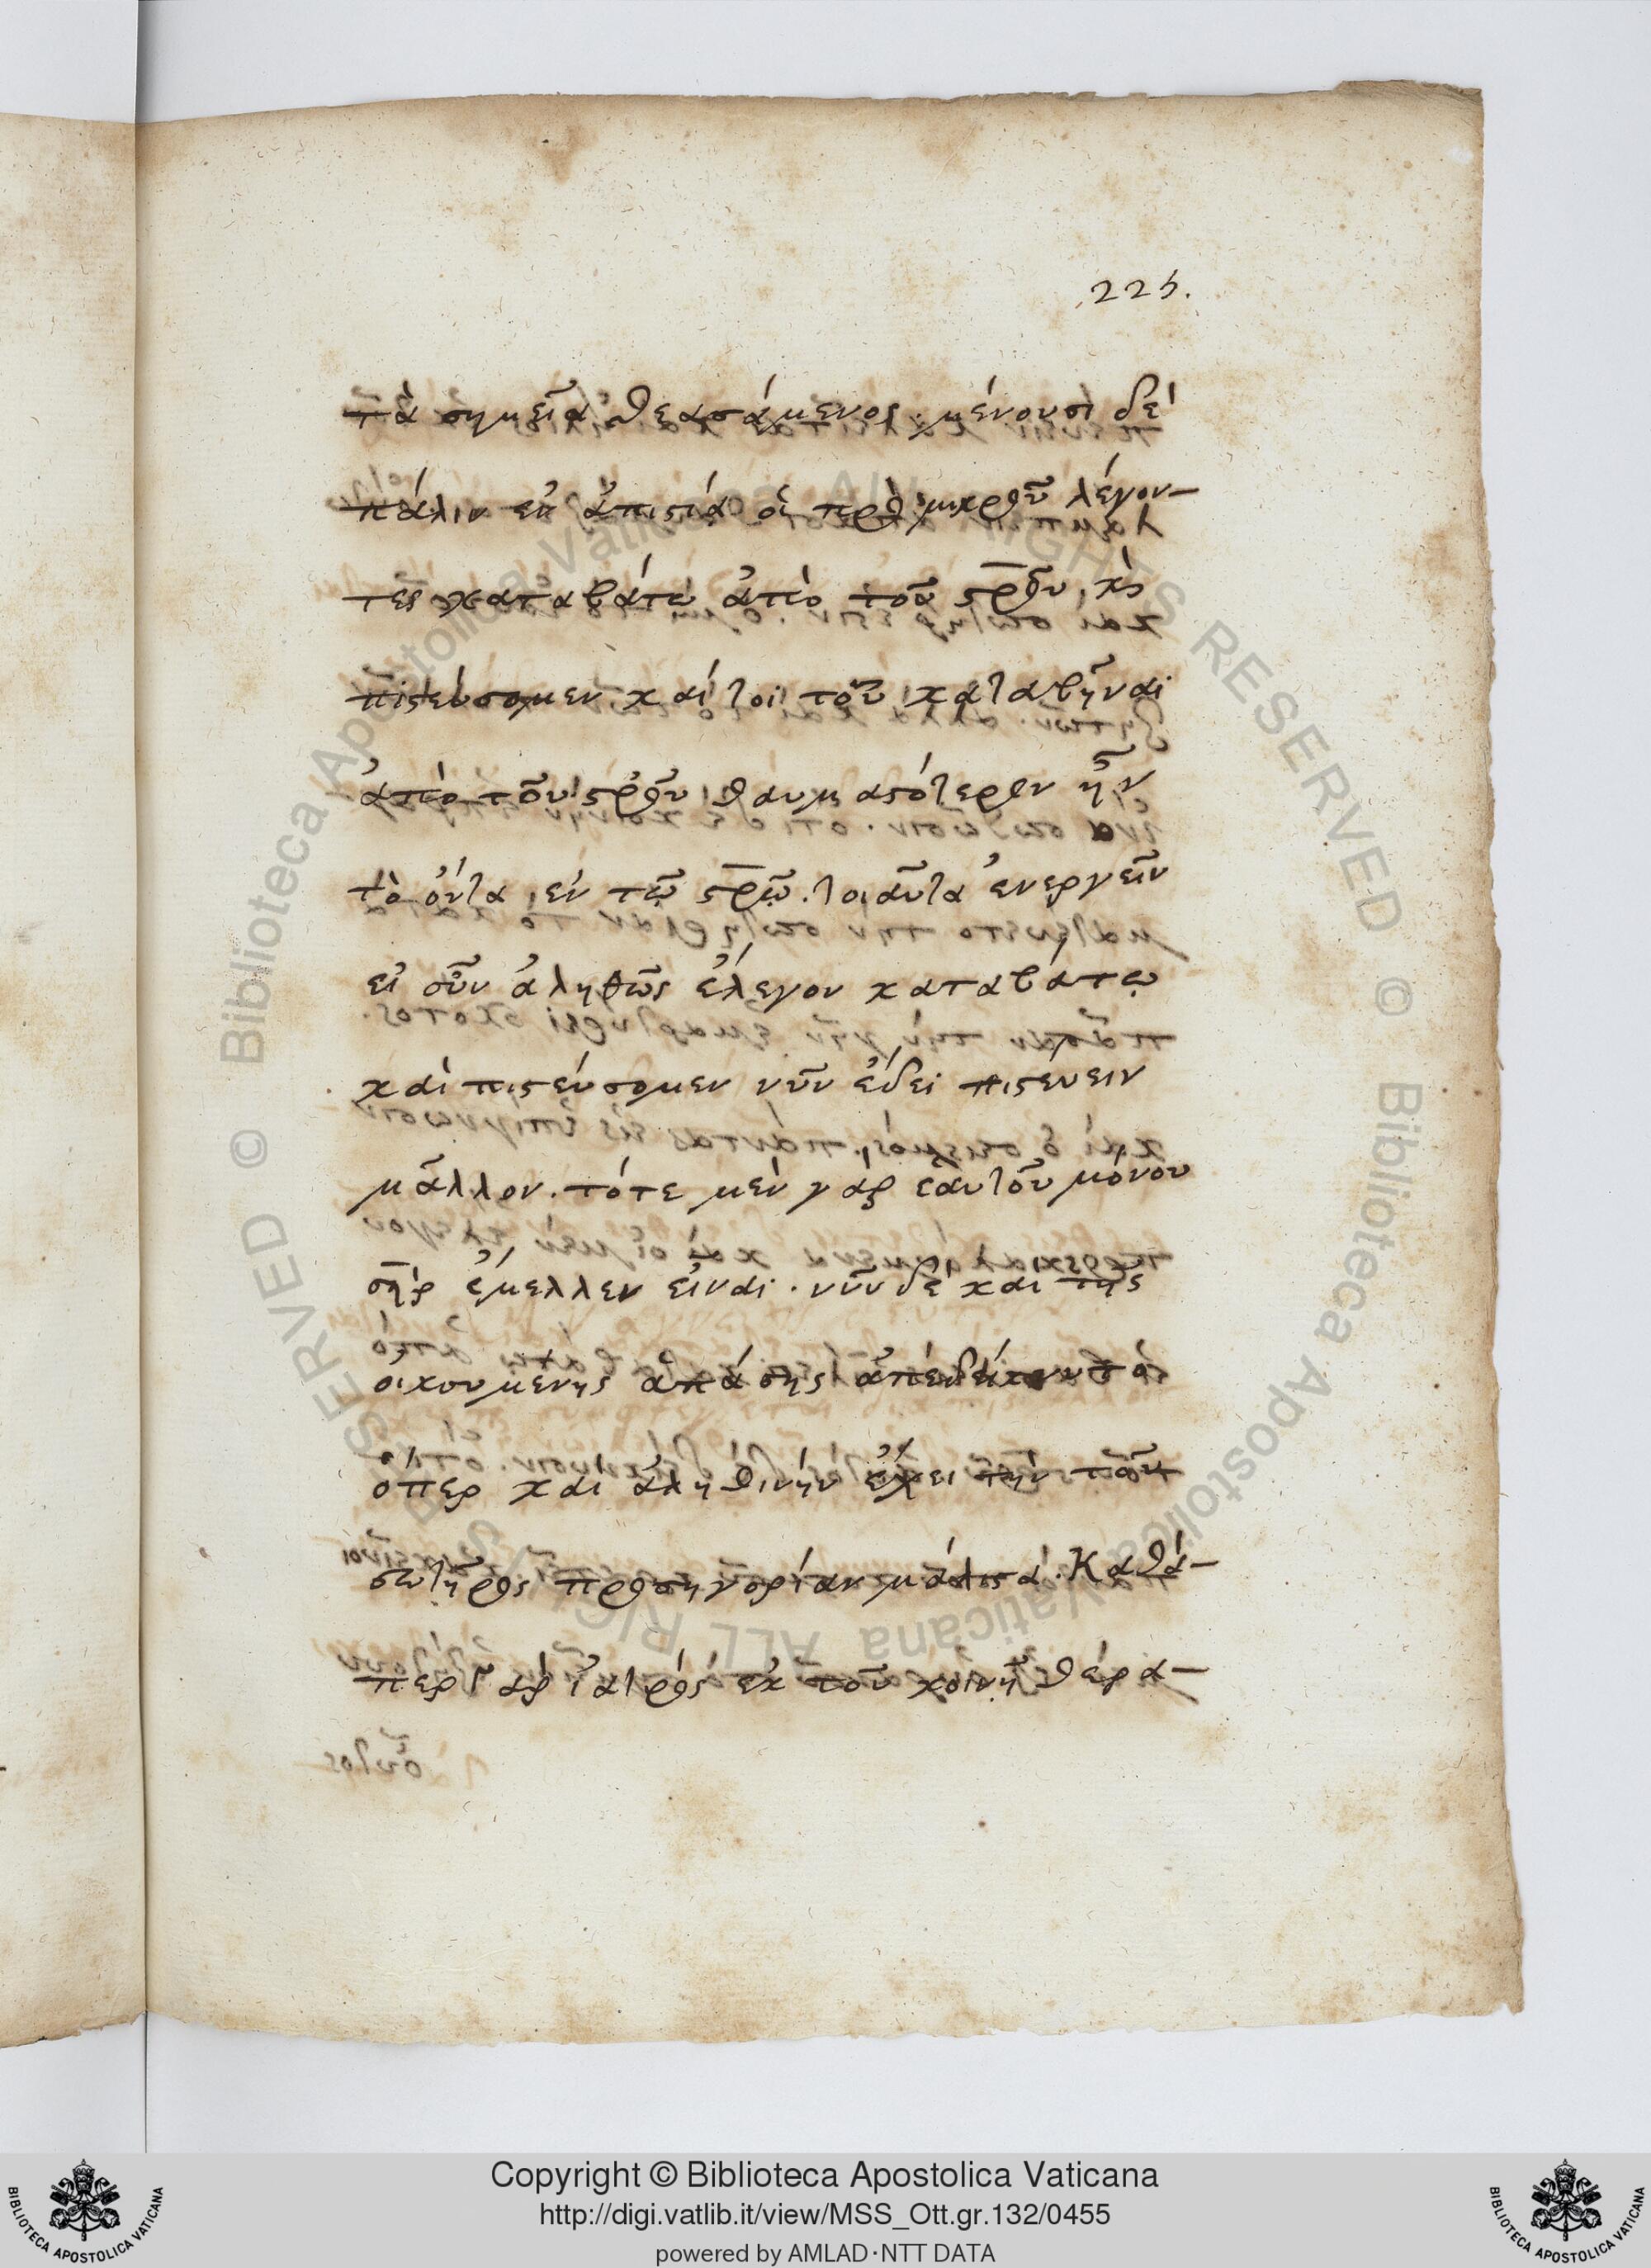 225.
τὰ σημεῖα θεασάμενος. μένουσι δὲ
πάλιν ἐν ἀπιστίᾳ οἱ πρὸ μικροῦ λέγον–
τες καταβάτω ἀπὸ τοῦ σ̅ρ̅οῦ, κὶ
πιστεύσομεν καίτοι τοῦ καταβῆναι
ἀπὸ τοῦ σροῦ θαυμαστότερον ἦν
τὸ ὄντα ἐν τῷ σ̅ρ̅ῷ. τοιαῦτα ἐνεργεῖν
εἰ οὖν ἀληθῶς ἔλεγον καταβάτω
καὶ πιστεύσομεν νῦν ἔδει πιστευειν
μᾶλλον. τότε μὲν γαρ ἑαυτοῦ μόνου
σὴρ ἔμελλεν εἶναι. νῦν δὲ και τῆς
οἰκουμένης ἁπάσης ἀπεδείκνυτο
ὅπερ καὶ ἀληθινὴν ἔχει τὴν τοῦ
σωτῆρος προσηγορίαν μάλιστα. Καθά–
περ γὰρ ἰατρὸς ἐκ τοῦ κοινῇ θερα–
Copyright © Biblioteca Apostolica Vaticana
http://digi.vatlib.it/view/MSS_Ott.gr.132/0455
powered by AMLAD·NTT DATA
BIBLIOTECA APOSTOLICA VATICANA
BIBLIOTECA APOSTOLICA VATICANA
© Biblioteca Apostolica Vaticana ALL RIGHTS RESERVED © Biblioteca Apostolica Vaticana ALL RIGHTS RESERVED